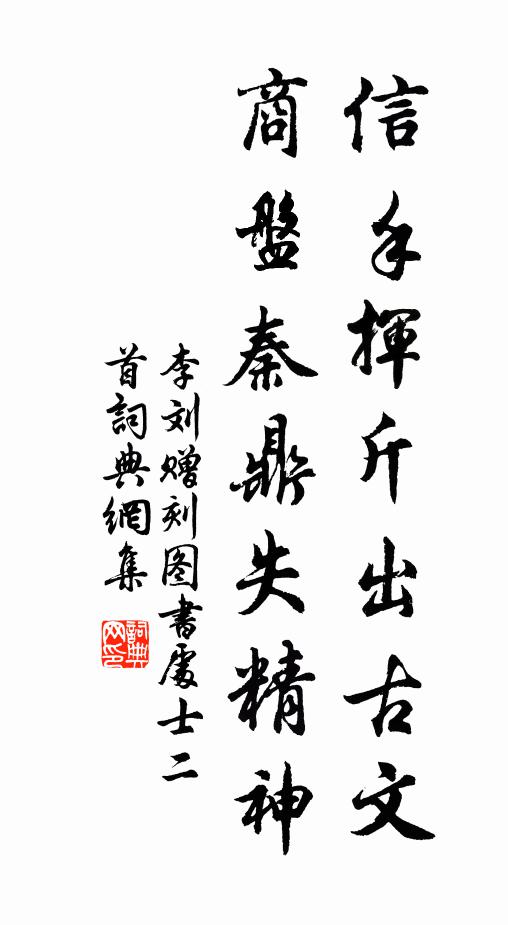 信手揮斤出古文
商盤秦鼎失精神
李刘赠刻图書處士二
首詞典網集
詞典网印